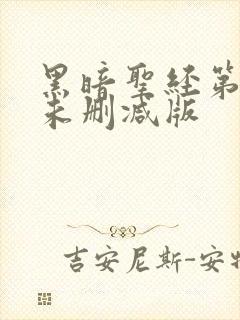 黑暗聖経第
未删减版
吉安尼斯-安特